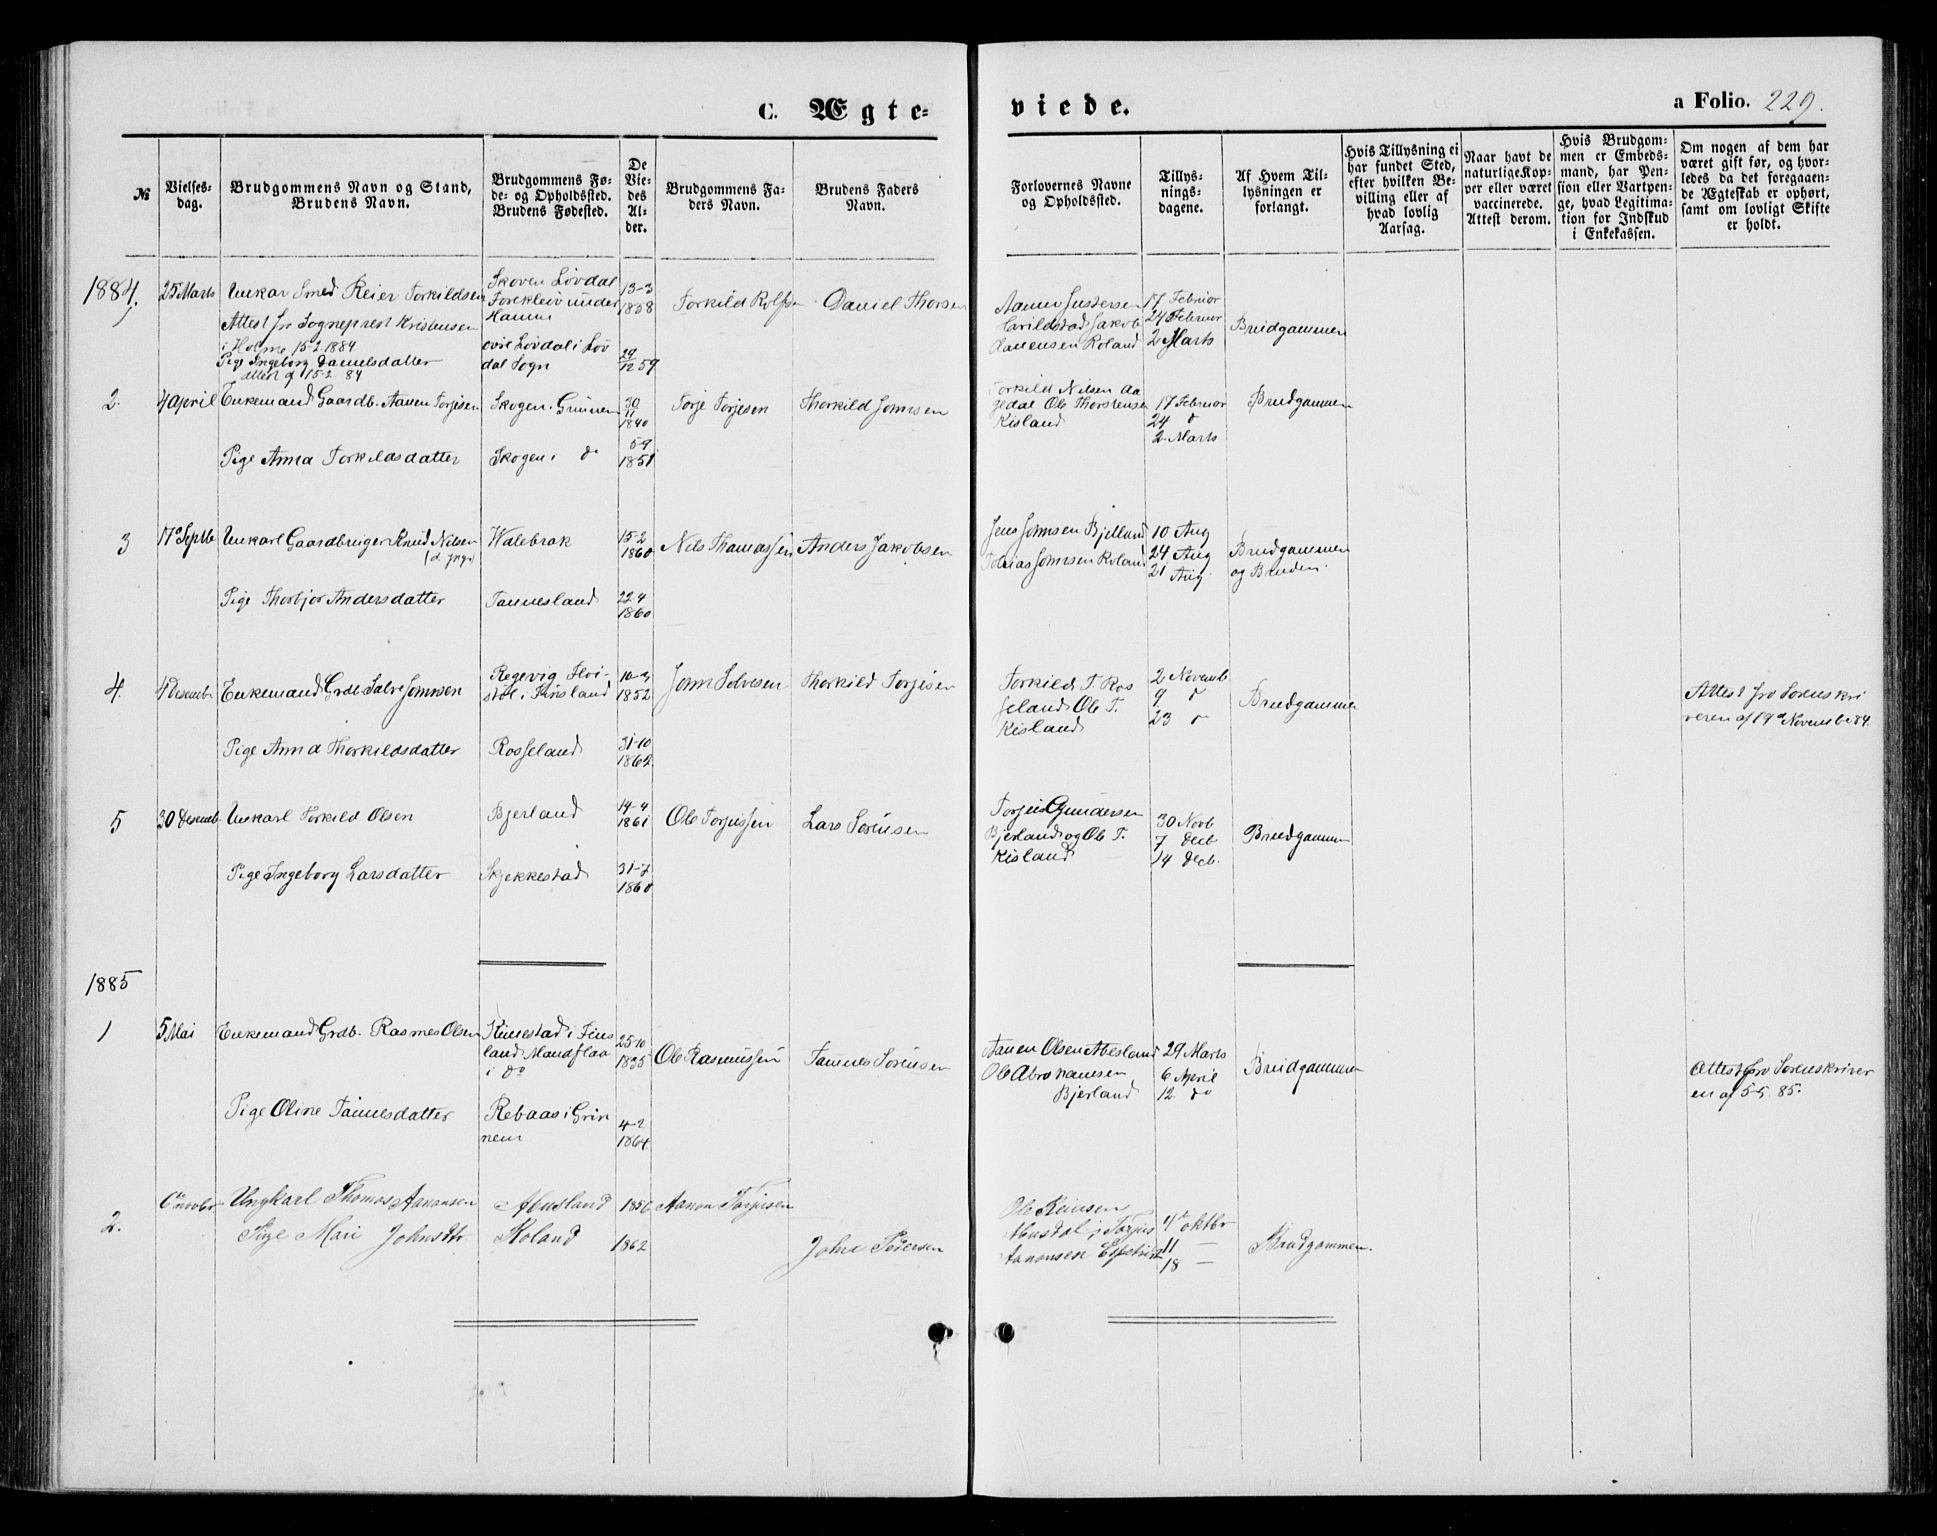 C. Ægte-
viede.
a Folio. 229.
№
Vielses-
dag.
Brudgommens Navn og Stand,
Brudens Navn.
Brudgommens Fø-
de- og Opholdssted.
Brudens Fødested.
De
Vie-
des
Al-
der.
Brudgommens Fa-
ders Navn.
Brudens Faders
Navn.
Forlovernes Navne
og Opholdssted.
Tillys-
nings-
dagene.
Af Hvem Til-
lysningen er
forlangt.
Hvis Tillysning ei
har fundet Sted,
efter hvilken Be-
villing eller af
hvad lovlig
Aarsag.
Naar havt de
naturlige Kop-
per eller været
vaccinerede.
Attest derom.
Hvis Brudgom-
men er Embeds-
mand, har Pen-
sion eller Vartpen-
ge, hvad Legitima-
tion for Indskud
i Enkekassen.
Om nogen af dem har
været gift før, og hvor-
ledes da det foregaaen-
de Ægteskab er ophørt,
samt om lovligt Skifte
er holdt.
1884.
25 Marts
Unkar Smed Reier Torkildsen
Attest fro Sogneprest Kristensen
i Holme 15-2 1884
Pige Ingeborg Danielsdatter
Attest af 15-2 84
Skoven Løvdal
under
Løvdal i Løv
dal Sogn
13-3
1838
29
12 59
Torkild Rolfsen
Daniel Thorsen
Jakob
Roland
17 Februar
24 Februar
2 Marts
Brudgammen
2.
4 April
Enkemand Gaardb. Aanen Torjesen
Pige Anna Torkildsdatter
Skogen i
Skogen i do
30
11
1840
5-9
1851
Torje Torjesen
Thorkild Jomsen
Torkild Nilsen Aa
gedal Ole Thorstensen
Kisland
17 Februar
24 d
2 Marts
Brudgammen
3
17 Septb
Unkarl Gaardbruger Knud Nilsen
Pige Thorbjor Andersdatter
Walebrak
Tannesland
15-2
1860
22 4
1860
Nils Thamassen
Anders Jakobsen
Jens Jomsen Bjelland
Tobias Jomsen Roland
10 Aug
24 Aug
21 Aug.
Brudgammen
og Bruden.
4.
4 Desemb
Enkemand Grdb. Salve Jomsen
Pige Anna Thorkildsdatter
Regevig Flri-
stol i Finsland
Rosseland
10-9
1852
31-10
1862
Jom Solvesen
Thorkild Torjesen
Torkild T. Ros
seland Ole T.
Kisland
2 Novemb
9 d
23 d
Brudgammen
Attest fro Sorenskri
veren af 19 Novemb. 84.
5
30 Desemb
Unkarl Torkild Olsen
Pige Ingeborg Larsdatter
Bjerland
Skjekkestad
14-4
1861
31-7
1860
Ole Torjussen
Lars Sorensen
Torjus Gundersen
Bjerland og Ole T.
Kisland
30 Novb
7 Decb
14 Decb.
Brudgammen
1885
1
5 Mai
Enkemand Grdb. Rasmes Olsen
Pige Oline Tannesdatter
Kimestad i Fins
land Mandflaa
i do
Rebaas i Grin
nem
25-10
1835
4-2
1864.
Ole Rasmussen
Tannes Sorensen
Aanen Olsen Abesland
Ole Abrahamsen
Bjerland
29 Marts
6 April
12. do
Brudgammen
Attest fro Sorenskriver
en af 5-5. 85.
2.
6te novbr
Ungkarl Thomas Aanonsen
Pige Mari Johnsdtr
Abusland
Roland
1856
1862
Aanon Torjusen
John Pedersen
Ole
Torjus
Aanonsen
4de oktbr
11 —
18 —
Brudgommen.